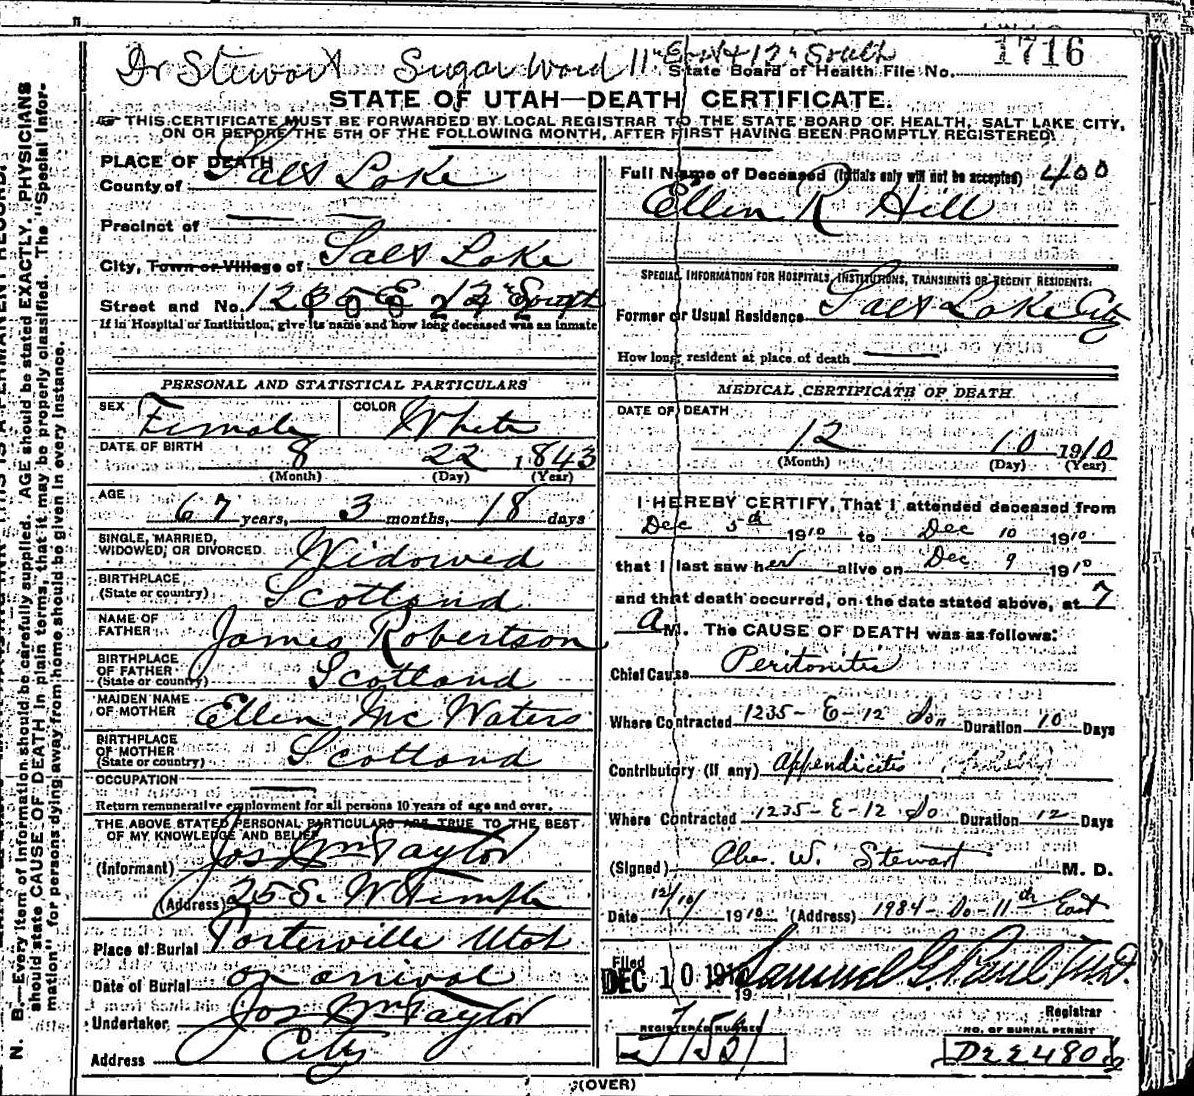 Dr Stewart Sugar Ward 11" East 12" South
1716
State Board of Health File No.
STATE OF UTAH—DEATH CERTIFICATE.
THIS CERTIFICATE MUST BE FORWARDED BY LOCAL REGISTRAR TO THE STATE BOARD OF HEALTH, SALT LAKE CITY,
ON OR BEFORE THE 5TH OF THE FOLLOWING MONTH, AFTER FIRST HAVING BEEN PROMPTLY REGISTERED.
PLACE OF DEATH
County of Salt Lake
Precinct of —
City, Town or Village of Salt Lake
Street and No. 1235 E 12" South
If in Hospital or Institution, give its name and how long deceased was an inmate
PERSONAL AND STATISTICAL PARTICULARS
SEX Female COLOR White
DATE OF BIRTH 8 22 1843
(Month) (Day) (Year)
AGE 67 years, 3 months, 18 days
SINGLE, MARRIED,
WIDOWED, OR DIVORCED Widowed
BIRTHPLACE
(State or country) Scotland
NAME OF
FATHER James Robertson
BIRTHPLACE
OF FATHER
(State or country) Scotland
MAIDEN NAME
OF MOTHER Ellen Mc Waters
BIRTHPLACE
OF MOTHER
(State or country) Scotland
OCCUPATION —
Return remunerative employment for all persons 10 years of age and over.
THE ABOVE STATED PERSONAL PARTICULARS ARE TRUE TO THE BEST
OF MY KNOWLEDGE AND BELIEF
(Informant) Jos Wm Taylor
(Address) 25 S. W Temple
Place of Burial Porterville Utah
Date of Burial on arrival
Undertaker Jos Wm Taylor
Address City
Full Name of Deceased (Initials only will not be accepted) 400
Ellen R Hill
SPECIAL INFORMATION FOR HOSPITALS, INSTITUTIONS, TRANSIENTS OR RECENT RESIDENTS:
Former or Usual Residence Salt Lake City
How long resident at place of death —
MEDICAL CERTIFICATE OF DEATH
DATE OF DEATH
12 10 1910
(Month) (Day) (Year)
I HEREBY CERTIFY, That I attended deceased from
Dec 5th 1910 to Dec 10 1910
that I last saw her alive on Dec 9 1910
and that death occurred, on the date stated above, at 7
a M. The CAUSE OF DEATH was as follows:
Chief Cause Peritonitis
Where Contracted 1235 - E - 12 So Duration 10 Days
Contributory (if any) Appendicitis
Where Contracted 1235 - E - 12 So Duration 12 Days
(Signed) Chas. W. Stewart M. D.
Date 12/10 1910 (Address) 1984 - So - 11th East
Filed DEC 10 1910 Samuel G. Paul, M.D.
19
Registrar
REGISTERED NUMBER
NO. OF BURIAL PERMIT
(OVER)
N. B.—Every item of information should be carefully supplied. AGE should be stated EXACTLY. PHYSICIANS
should state CAUSE OF DEATH in plain terms, that it may be properly classified. The "Special Infor-
mation" for persons dying away from home should be given in every instance.